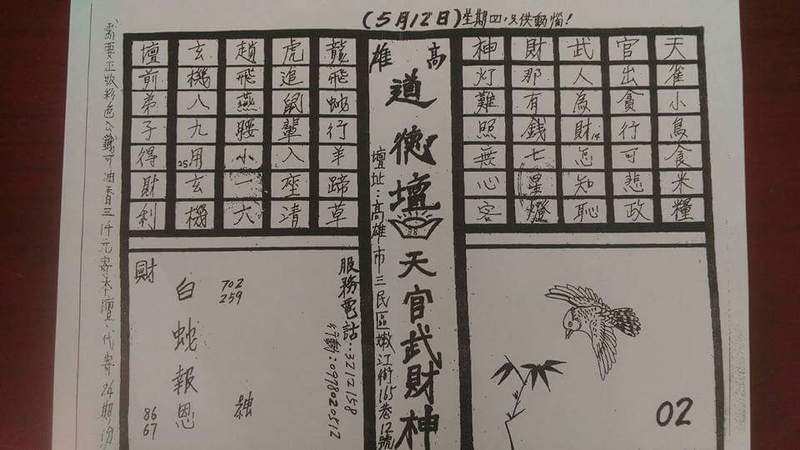 (5月12日)星期四,只供動腦!
天雀小鳥食米糧
官出貪行可悲政
武人為財怎知恥
14
財那有錢七星燈
神灯難照無心客
02
高雄
道德壇
天官武財神
壇址:高雄市三民區嫩江街165巷12號
龍飛蛇行羊蹄草
虎追鼠輩入座清
趙飛燕腰小一六
玄機八九用玄機
25
壇前弟子得財利
服務電話:3212158
行動:0978020512
702
259
白蛇報恩
財
86
67
需要正版彩色
可油香三仟元寄本壇,代寄24期份